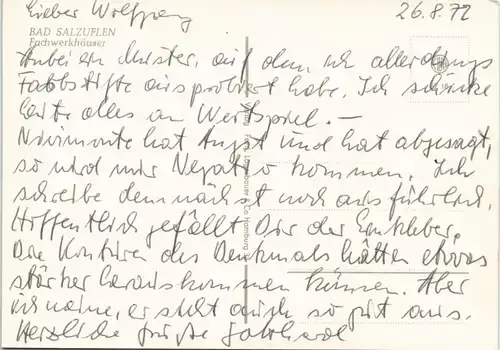 Lieber Wolfgang
26.8.72
BAD SALZUFLEN
Fachwerkhäuser
Anbei ein Muster, auf dem ich allerdings
Farbstifte ausprobiert habe. Ich schicke
heute alles an Wertspiel. –
Neumonte hat Angst und hat abgesagt,
so wird nur Negativ kommen. Ich
schreibe demnächst noch ausführlich.
Hoffentlich gefällt Dir der Einkleber.
Die Konturen des Denkmals hätten etwas
stärker herauskommen können. Aber
ich meine, er sieht auch so gut aus.
Herzliche Grüße